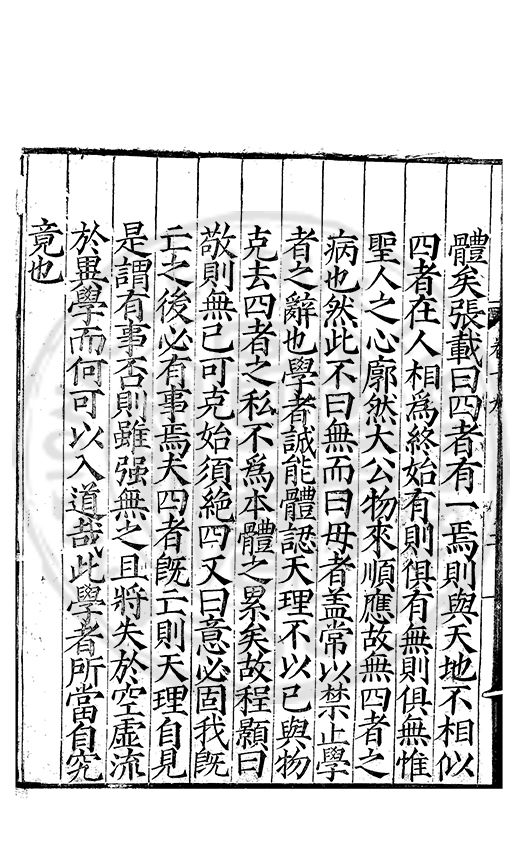 體矣張載曰四者有一焉則與天地不相似
四者在人相爲終始有則俱有無則俱無惟
聖人之心廓然大公物來順應故無四者之
病也然此不曰無而曰毋者盖常以禁止學
者之辭也學者誠能體認天理不以己與物
克去四者之私不爲本體之累矣故程顥曰
敬則無己可克始須絶四又曰意必固我旣
亡之後必有事焉夫四者旣亡則天理自見
是謂有事否則雖强無之且將失於空虛流
於異學而何可以入道哉此學者所當自究
竟也